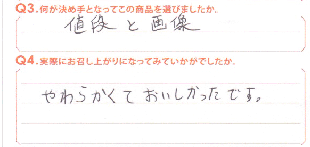 Q3.何が決め手となってこの商品を選びましたか.
値段と画像
Q4.実際にお召し上がりになってみていかがでしたか.
やわらかくておいしかったです。